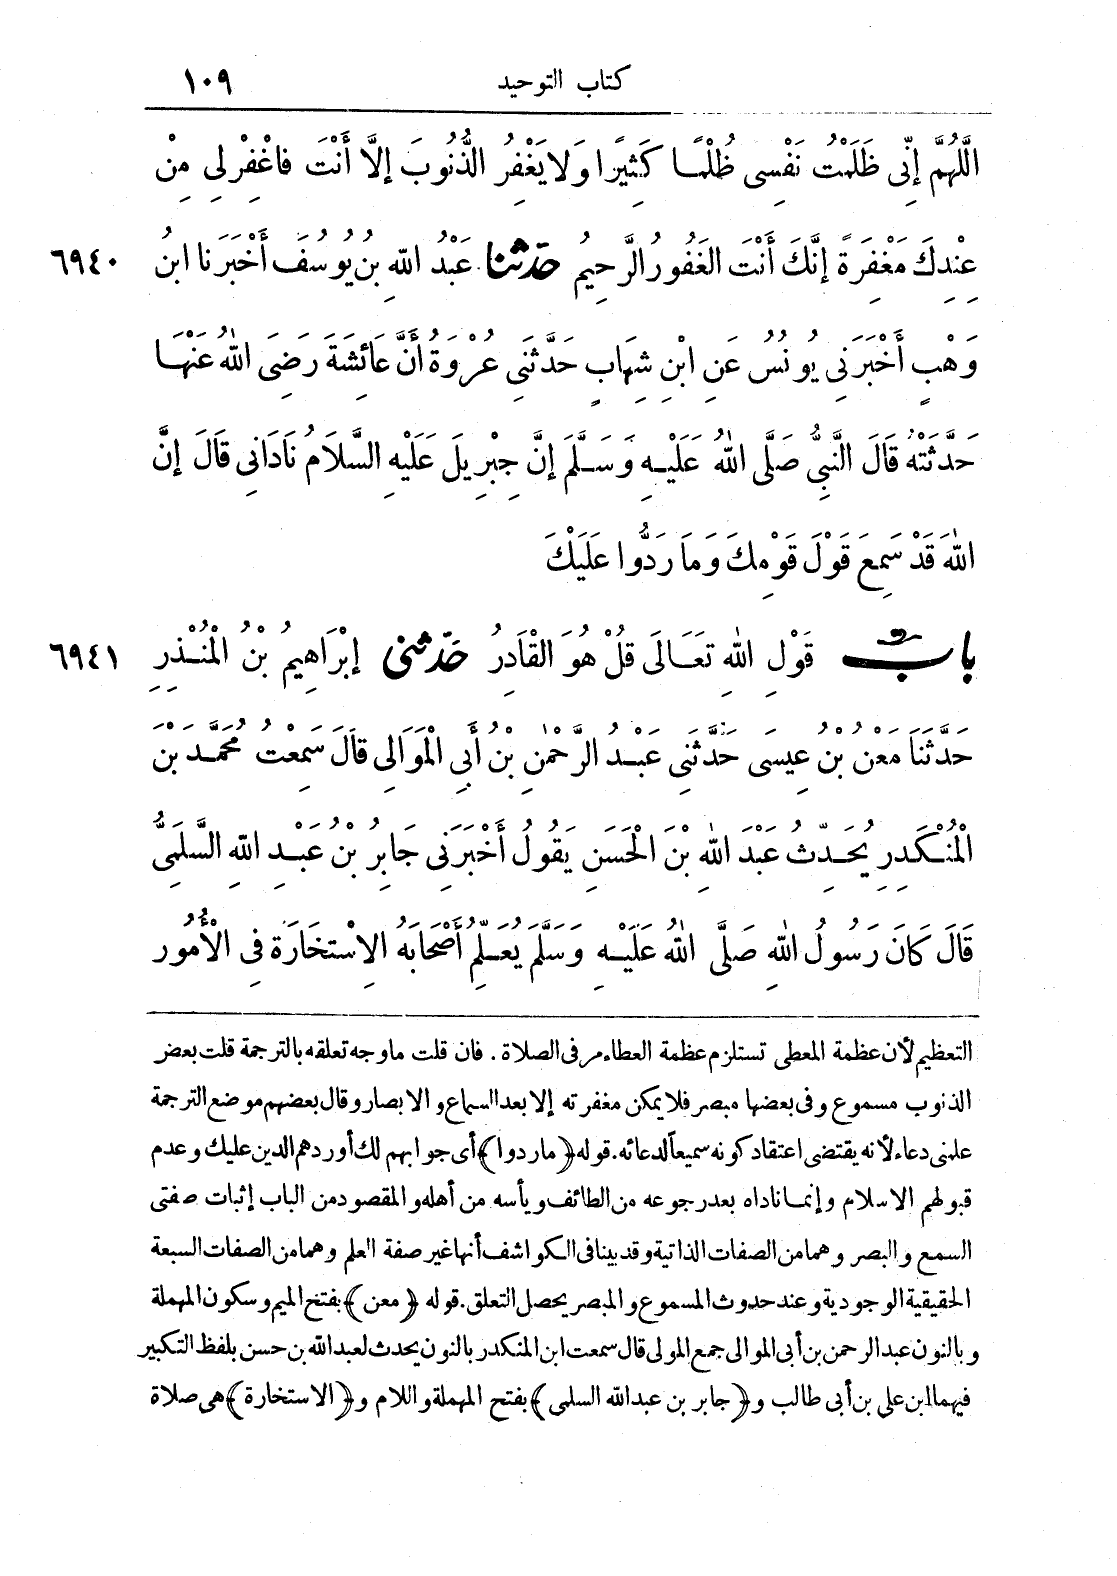 كتاب التوحيد ١٠٩
اللَّهُمَّ إِنِّى ظَلَمْتُ نَفْسِى ظُلْمًا كَثِيرًا وَلَا يَغْفِرُ الذُّنُوبَ إِلاَّ أَنْتَ فَاغْفِرْ لِى مِنْ
عِنْدِكَ مَغْفِرَةً إِنَّكَ أَنْتَ الغَفُورُ الرَّحِيمُ حَدَّثَنَا عَبْدُ اللهِ بنُ يُوسُفَ أَخْبَرَنَا ابنُ ٦٩٤٠
وَهْبٍ أَخْبَرَنِى يُونُسُ عَنِ ابْنِ شِهَابٍ حَدَّثَنِى عُرْوَةُ أَنَّ عَائِشَةَ رَضِىَ اللهُ عَنْهَا
حَدَّثَتْهُ قَالَ النَّبِىُّ صَلَّى اللهُ عَلَيْهِ وَسَلَّمَ إِنَّ جِبْرِيلَ عَلَيْهِ السَّلَامُ نَادَانِى قَالَ إِنَّ
اللهَ قَدْ سَمِعَ قَوْلَ قَوْمِكَ وَمَا رَدُّوا عَلَيْكَ
بابُ قَوْلِ اللهِ تَعَالَى قُلْ هُوَ القَادِرُ حَدَّثَنِى إِبْرَاهِيمُ بْنُ الْمُنْذِرِ ٦٩٤١
حَدَّثَنَا مَعْنُ بْنُ عِيسَى حَدَّثَنِى عَبْدُ الرَّحْمٰنِ بْنُ أَبِى الْمَوَالِى قَالَ سَمِعْتُ مُحَمَّدَ بْنَ
الْمُنْكَدِرِ يُحَدِّثُ عَبْدَ اللهِ بْنَ الْحَسَنِ يَقُولُ أَخْبَرَنِى جَابِرُ بْنُ عَبْدِ اللهِ السَّلَمِىُّ
قَالَ كَانَ رَسُولُ اللهِ صَلَّى اللهُ عَلَيْهِ وَسَلَّمَ يُعَلِّمُ أَصْحَابَهُ الاِسْتِخَارَةَ فِى الْأُمُورِ
التعظيم لأن عظمة المعطى تستلزم عظمة العطاء مر فى الصلاة . فان قلت ما وجه تعلقه بالترجمة قلت بعض
الذنوب مسموع وفى بعضها مبصر فلا يمكن مغفرته إلا بعد السماع والابصار وقال بعضهم موضع الترجمة
علمنى دعاء لأنه يقتضى اعتقاد كونه سميعاً لدعائه. قوله ﴿ما ردوا﴾ أى جوابهم لك أو ردهم الدين عليك وعدم
قبولهم الاسلام وإنما ناداه بعد رجوعه من الطائف ويأسه من أهله والمقصود من الباب إثبات صفتى
السمع والبصر وهما من الصفات الذاتية وقد بينا فى الكواشف أنها غير صفة العلم وهما من الصفات السبعة
الحقيقية الوجودية وعند حدوث المسموع والمبصر يحصل التعلق. قوله ﴿معن﴾ بفتح الميم وسكون المهملة
وبالنون عبد الرحمن بن أبى الموالى جمع المولى قال سمعت ابن المنكدر بالنون يحدث لعبد الله بن حسن بلفظ التكبير
فيهما ابن على بن أبى طالب و﴿جابر بن عبد الله السلمى﴾ بفتح المهملة واللام و﴿الاستخارة﴾ هى صلاة